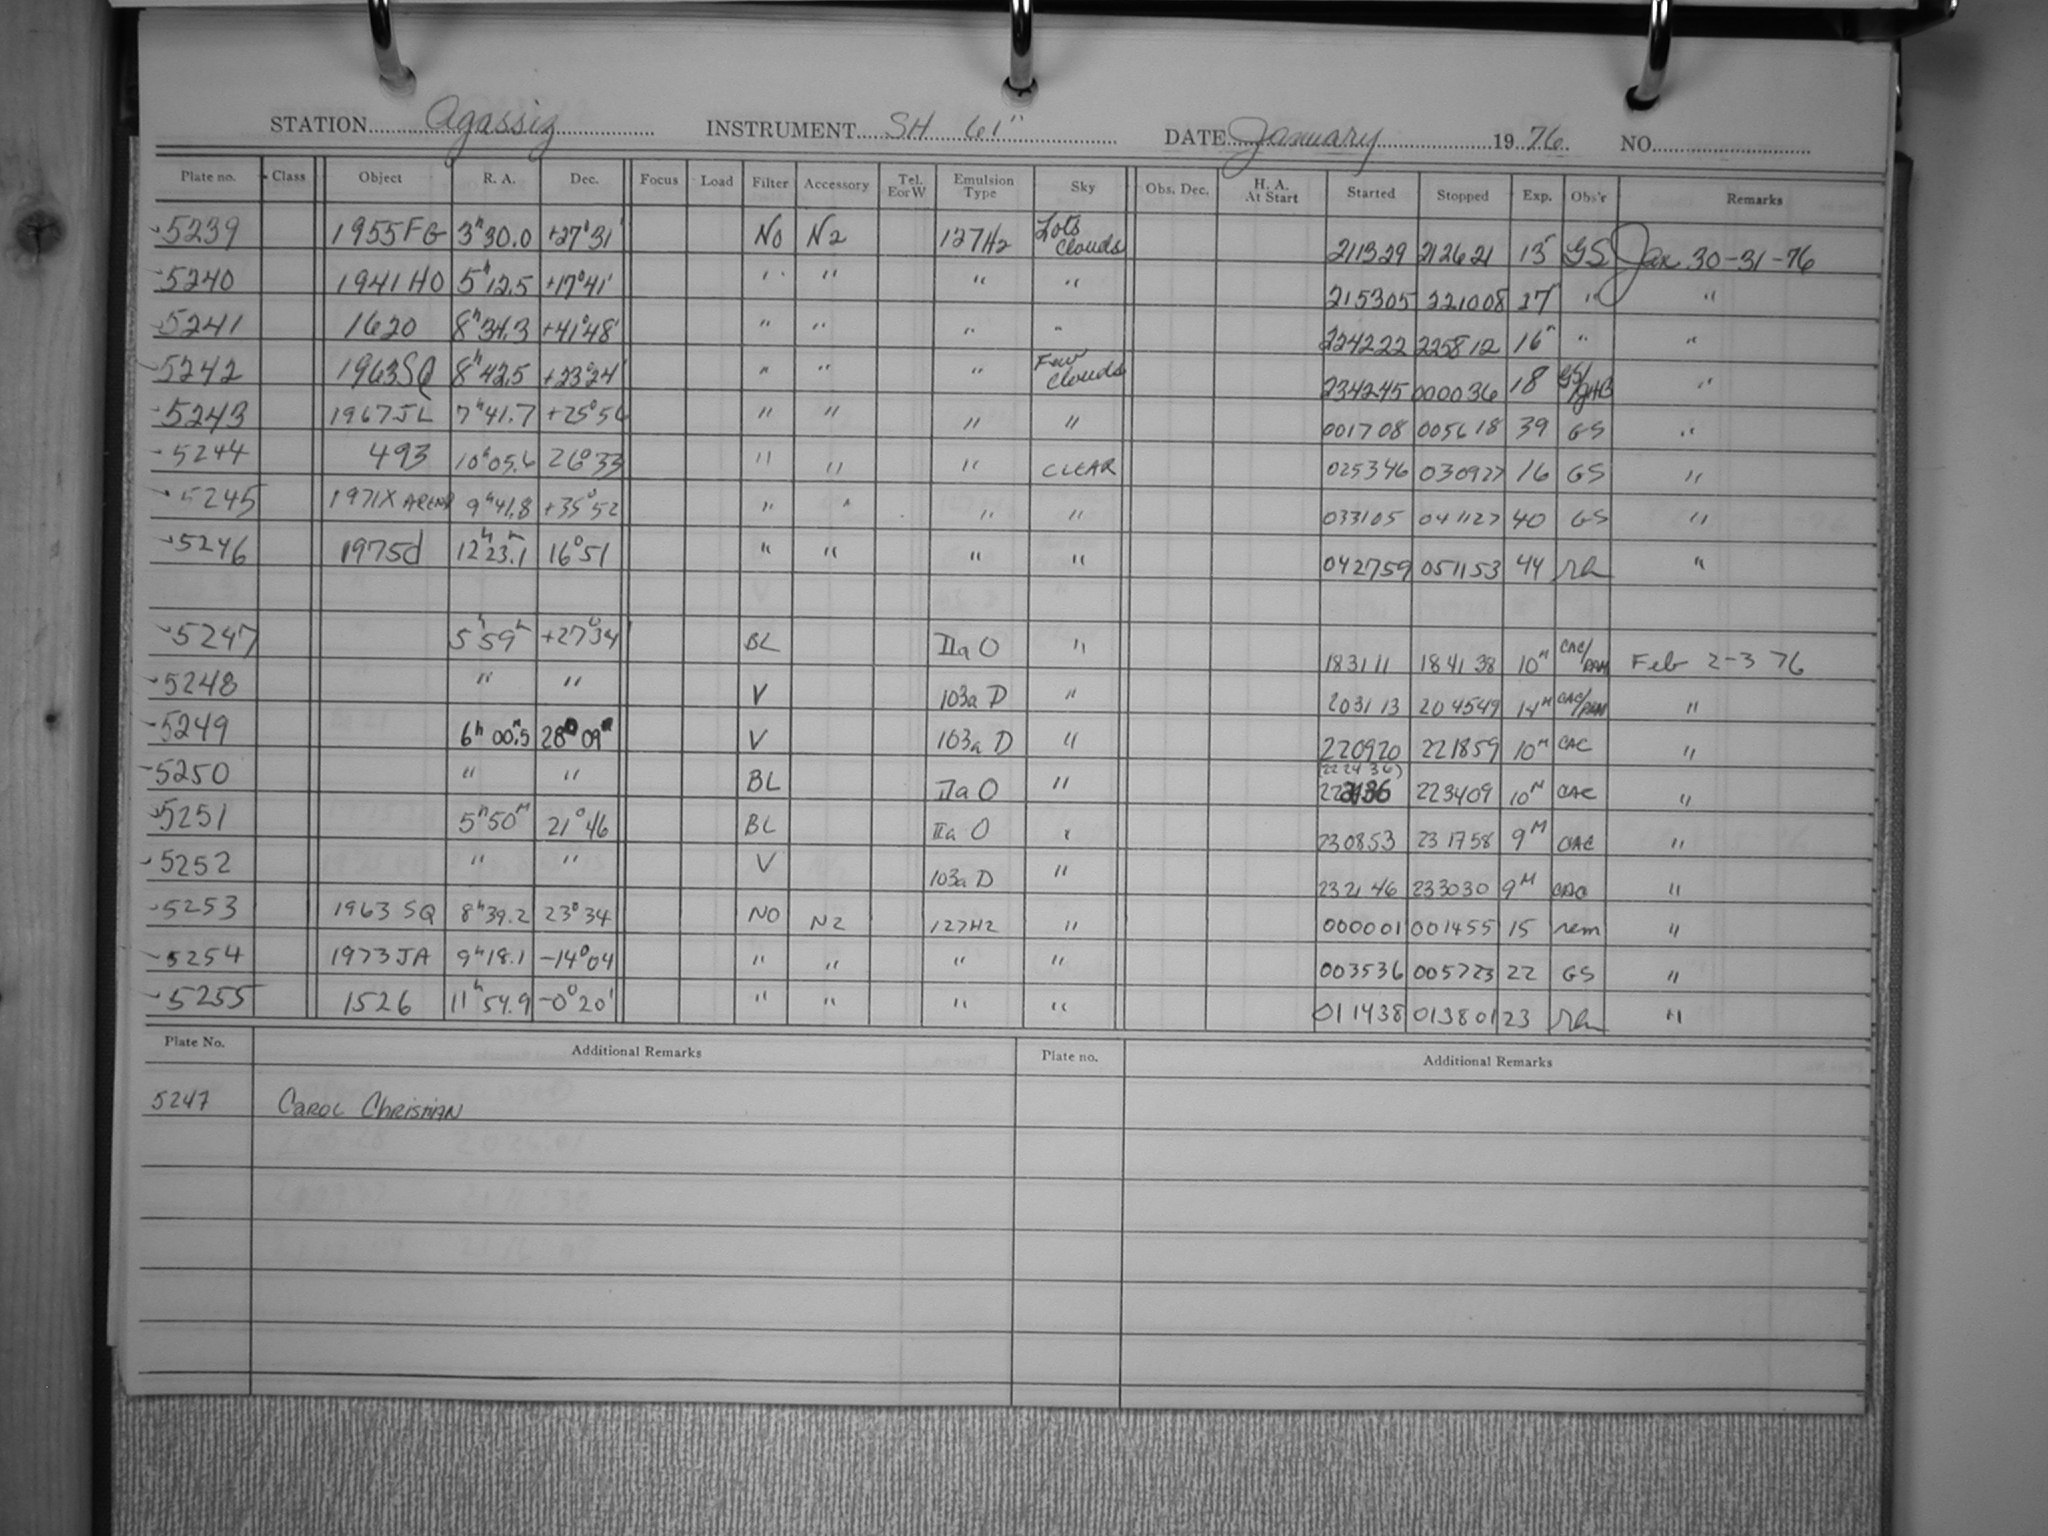 STATION Agassiz INSTRUMENT SH 61" DATE January 1976 NO.
Plate no. Class Object R. A. Dec. Focus Load Filter Accessory Tel. E or W Emulsion Type Sky Obs. Dec. H. A. At Start Started Stopped Exp. Obs'r Remarks
5239 1955FG 3h30.0 +27°31' No N2 127H2 Lots Clouds 211329 212621 13m GS Jan 30-31-76
5240 1941HO 5h12.5 +17°41' " " " " 215305 221008 17 " "
5241 1620 8h34.3 +41°48' " " " " 224222 225812 16m " "
5242 1963SQ 8h42.5 +23°24' " " " Few Clouds 234245 000036 18 GS/ "
5243 1967JL 7h41.7 +25°56 " " " " 001708 005618 39 GS "
5244 493 10h05.6 26°33 " " " CLEAR 025346 030927 16 GS "
5245 1971X AREND 9h41.8 +35°52 " " " " 033105 041127 40 GS "
5246 1975d 12h23.1 16°51 " " " " 042759 051153 44 "
5247 5h59m +27°34 BL IIa O " 183111 184138 10m CAC/ Feb 2-3 76
5248 " " V 103a D " 203113 204549 14M CAC/ "
5249 6h00.5 28°09 V 103a D " 220920 221859 10M CAC "
5250 " " BL IIa O " (222436) 223409 10M CAC "
5251 5h50M 21°46 BL IIa O " 230853 231758 9M CAC "
5252 " " V 103a D " 232146 233030 9M CAC "
5253 1963 SQ 8h39.2 23°34 NO N2 127H2 " 000001 001455 15 rem "
5254 1973JA 9h18.1 -14°04 " " " " 003536 005723 22 GS "
5255 1526 11h54.9 -0°20' " " " " 011438 013801 23 "
Plate No. Additional Remarks Plate no. Additional Remarks
5247 Carol Christian